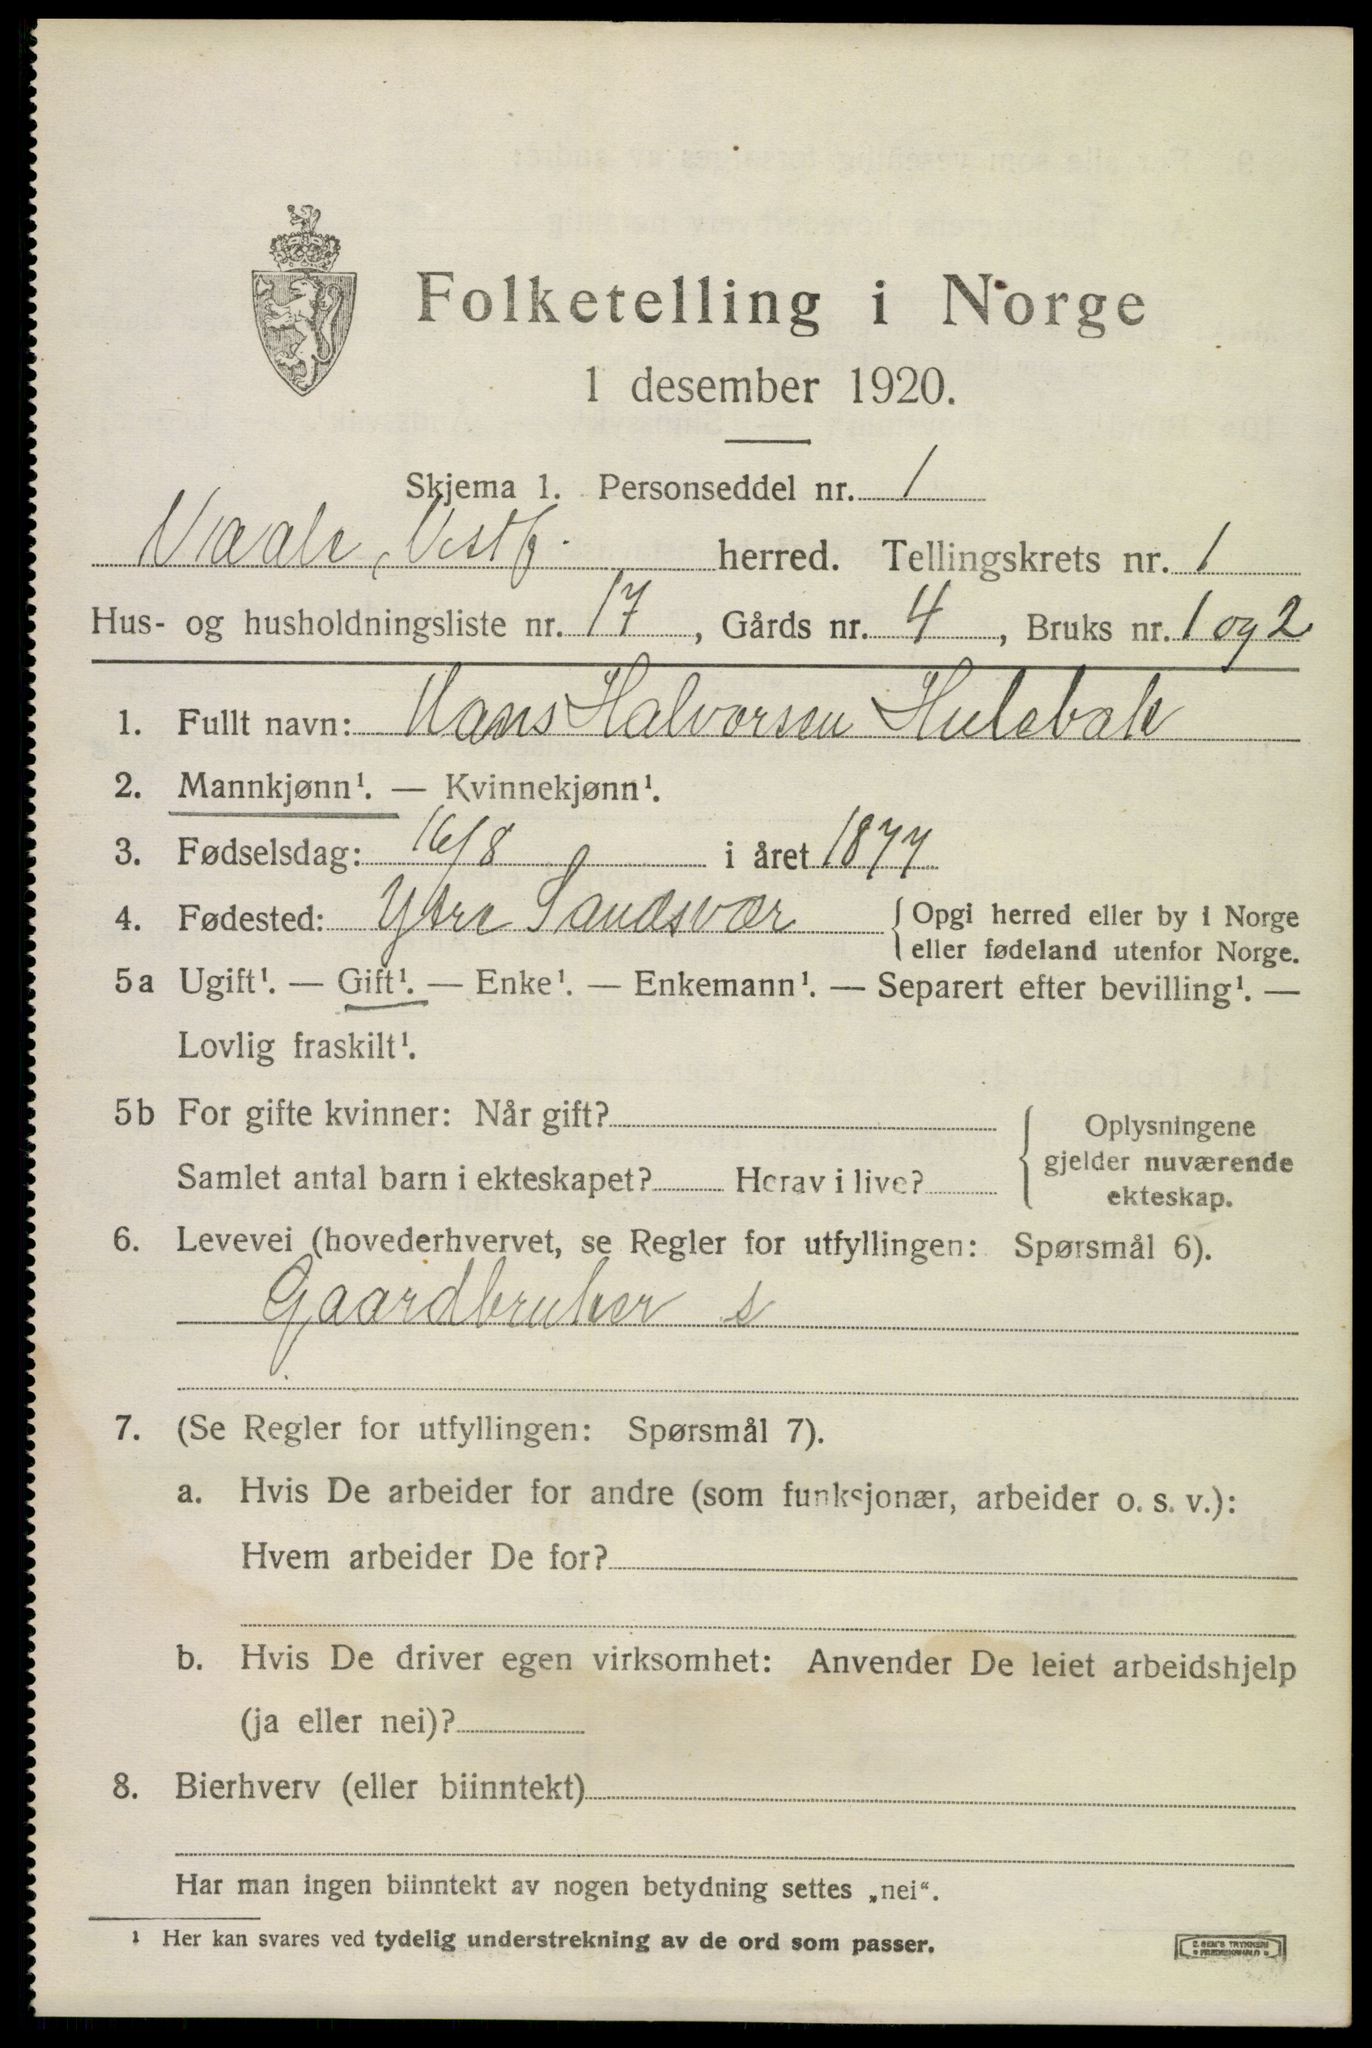 Folketelling i Norge
1 desember 1920.
Skjema 1. Personseddel nr. 1
Vaale, Vestf. herred. Tellingskrets nr. 1
Hus- og husholdningsliste nr. 17, Gårds nr. 4, Bruks nr. 1 og 2
1. Fullt navn: Hans Halvorsen Hulebak
2. Mannkjønn¹. — Kvinnekjønn¹.
3. Fødselsdag: 16/8 i året 1877
4. Fødested: Ytre Sandsvær { Opgi herred eller by i Norge
eller fødeland utenfor Norge.
5a Ugift¹. — Gift¹. — Enke¹. — Enkemann¹. — Separert efter bevilling¹. —
Lovlig fraskilt¹.
5b For gifte kvinner: Når gift?
Samlet antal barn i ekteskapet? Herav i live?
{ Oplysningene
gjelder nuværende
ekteskap.
6. Levevei (hovederhvervet, se Regler for utfyllingen: Spørsmål 6).
Gaardbruker s
7. (Se Regler for utfyllingen: Spørsmål 7).
a. Hvis De arbeider for andre (som funksjonær, arbeider o. s. v.):
Hvem arbeider De for?
b. Hvis De driver egen virksomhet: Anvender De leiet arbeidshjelp
(ja eller nei)?
8. Bierhverv (eller biinntekt)
Har man ingen biinntekt av nogen betydning settes „nei“.
¹ Her kan svares ved tydelig understrekning av de ord som passer.